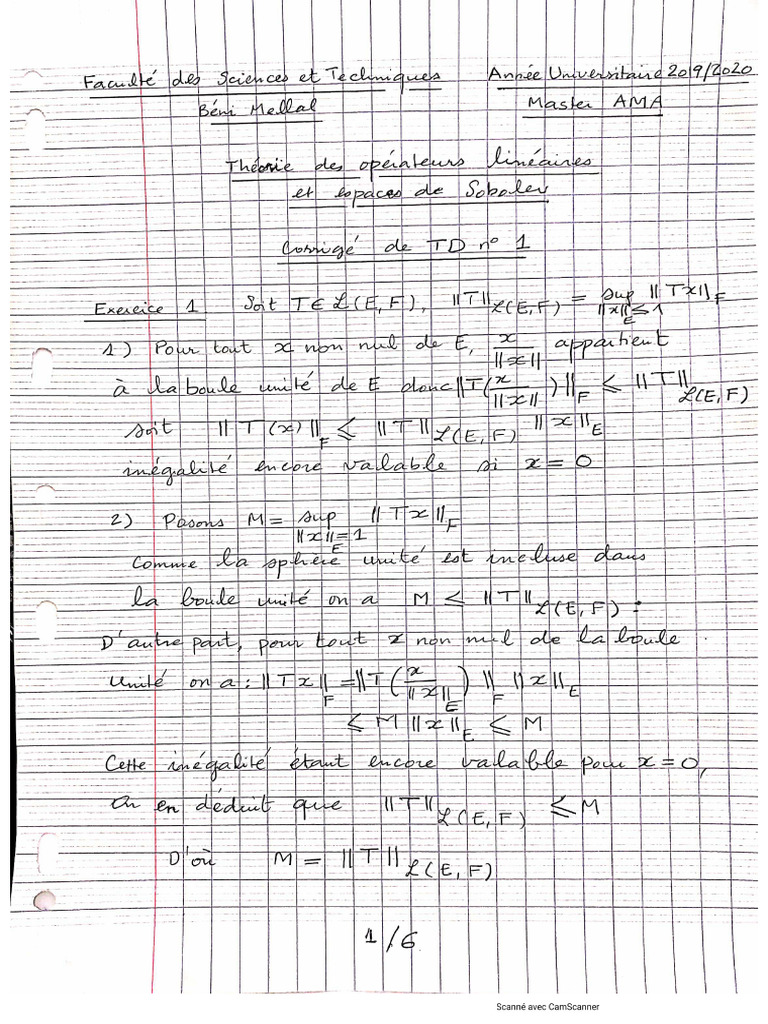 Faculté des Sciences et Techniques Année Universitaire 2019/2020
Béni Mellal Master AMA
Théorie des opérateurs linéaires
et espaces de Sobolev
Corrigé de TD n° 1
Exercice 1 Soit T ∈ ℒ(E,F), ||T||_ℒ(E,F) = sup_{||x||_E ≤ 1} ||Tx||_F
1) Pour tout x non nul de E, x/||x|| appartient
à la boule unité de E donc ||T(x/||x||)||_F ≤ ||T||_ℒ(E,F)
soit ||T(x)||_F ≤ ||T||_ℒ(E,F) ||x||_E
inégalité encore valable si x = 0
2) Posons M = sup_{||x||_E = 1} ||Tx||_F
Comme la sphère unité est incluse dans
la boule unité on a M ≤ ||T||_ℒ(E,F) :
D'autre part, pour tout x non nul de la boule
unité on a : ||Tx||_F = ||T(x/||x||_E)||_F ||x||_E
≤ M ||x||_E ≤ M
Cette inégalité étant encore valable pour x = 0,
on en déduit que ||T||_ℒ(E,F) ≤ M
D'où M = ||T||_ℒ(E,F)
1/6
Scanné avec CamScanner